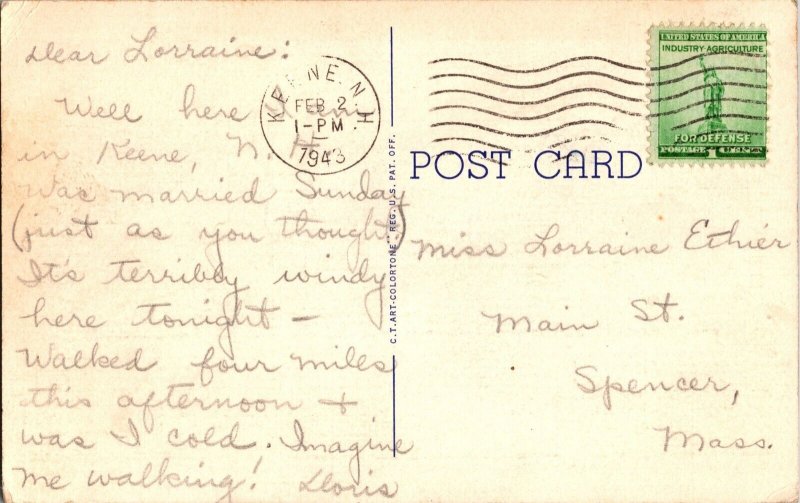 Dear Lorraine:
Well here I am
in Keene, N. H.
Was married Sunday
(just as you thought!)
It's terribly windy
here tonight —
Walked four miles
this afternoon +
was I cold. Imagine
me walking! Doris
KEENE, N.H.
FEB 2
1-PM
1943
C.T. ART-COLORTONE REG. U.S. PAT. OFF.
UNITED STATES OF AMERICA
INDUSTRY·AGRICULTURE
FOR DEFENSE
POSTAGE 1¢ U.S.
POST CARD
Miss Lorraine Ethier
Main St.
Spencer,
Mass.